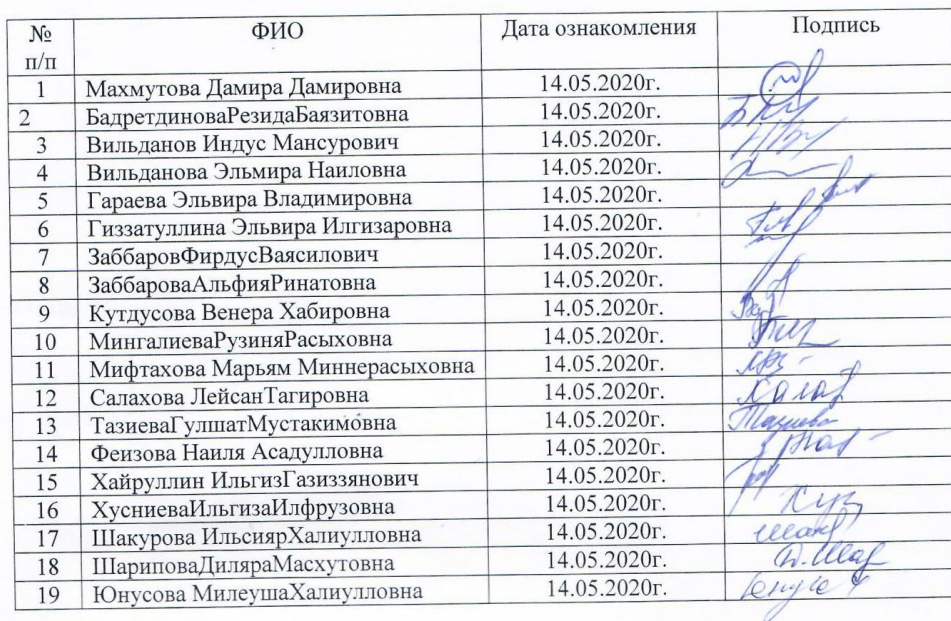 № п/п ФИО Дата ознакомления Подпись
1 Махмутова Дамира Дамировна 14.05.2020г.
2 БадретдиноваРезидаБаязитовна 14.05.2020г.
3 Вильданов Индус Мансурович 14.05.2020г.
4 Вильданова Эльмира Наиловна 14.05.2020г.
5 Гараева Эльвира Владимировна 14.05.2020г.
6 Гиззатуллина Эльвира Илгизаровна 14.05.2020г.
7 ЗаббаровФирдусВаясилович 14.05.2020г.
8 ЗаббароваАльфияРинатовна 14.05.2020г.
9 Кутдусова Венера Хабировна 14.05.2020г.
10 МингалиеваРузиняРасыховна 14.05.2020г.
11 Мифтахова Марьям Миннерасыховна 14.05.2020г.
12 Салахова ЛейсанТагировна 14.05.2020г.
13 ТазиеваГулшатМустакимовна 14.05.2020г.
14 Феизова Наиля Асадулловна 14.05.2020г.
15 Хайруллин ИльгизГазиззянович 14.05.2020г.
16 ХусниеваИльгизаИлфрузовна 14.05.2020г.
17 Шакурова ИльсиярХалиулловна 14.05.2020г.
18 ШариповаДиляраМасхутовна 14.05.2020г.
19 Юнусова МилеушаХалиулловна 14.05.2020г.